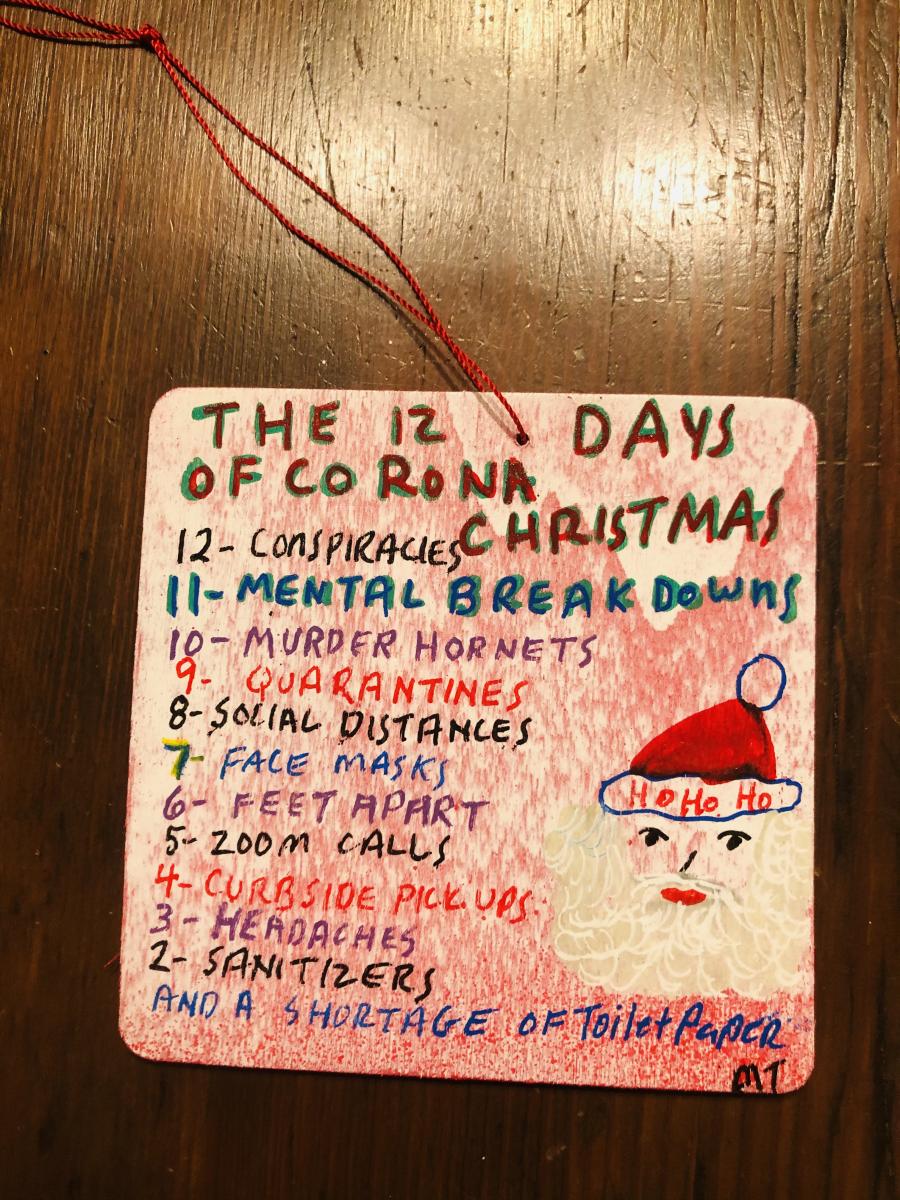 THE 12 DAYS
OF CORONA
CHRISTMAS
12- CONSPIRACIES
11- MENTAL BREAK DOWNS
10- MURDER HORNETS
9- QUARANTINES
8- SOCIAL DISTANCES
7- FACE MASKS
6- FEET APART
5- ZOOM CALLS
4- CURBSIDE PICK UPS.
3- HEADACHES
2- SANITIZERS
AND A SHORTAGE OF Toilet PaPER
HO HO HO
MT